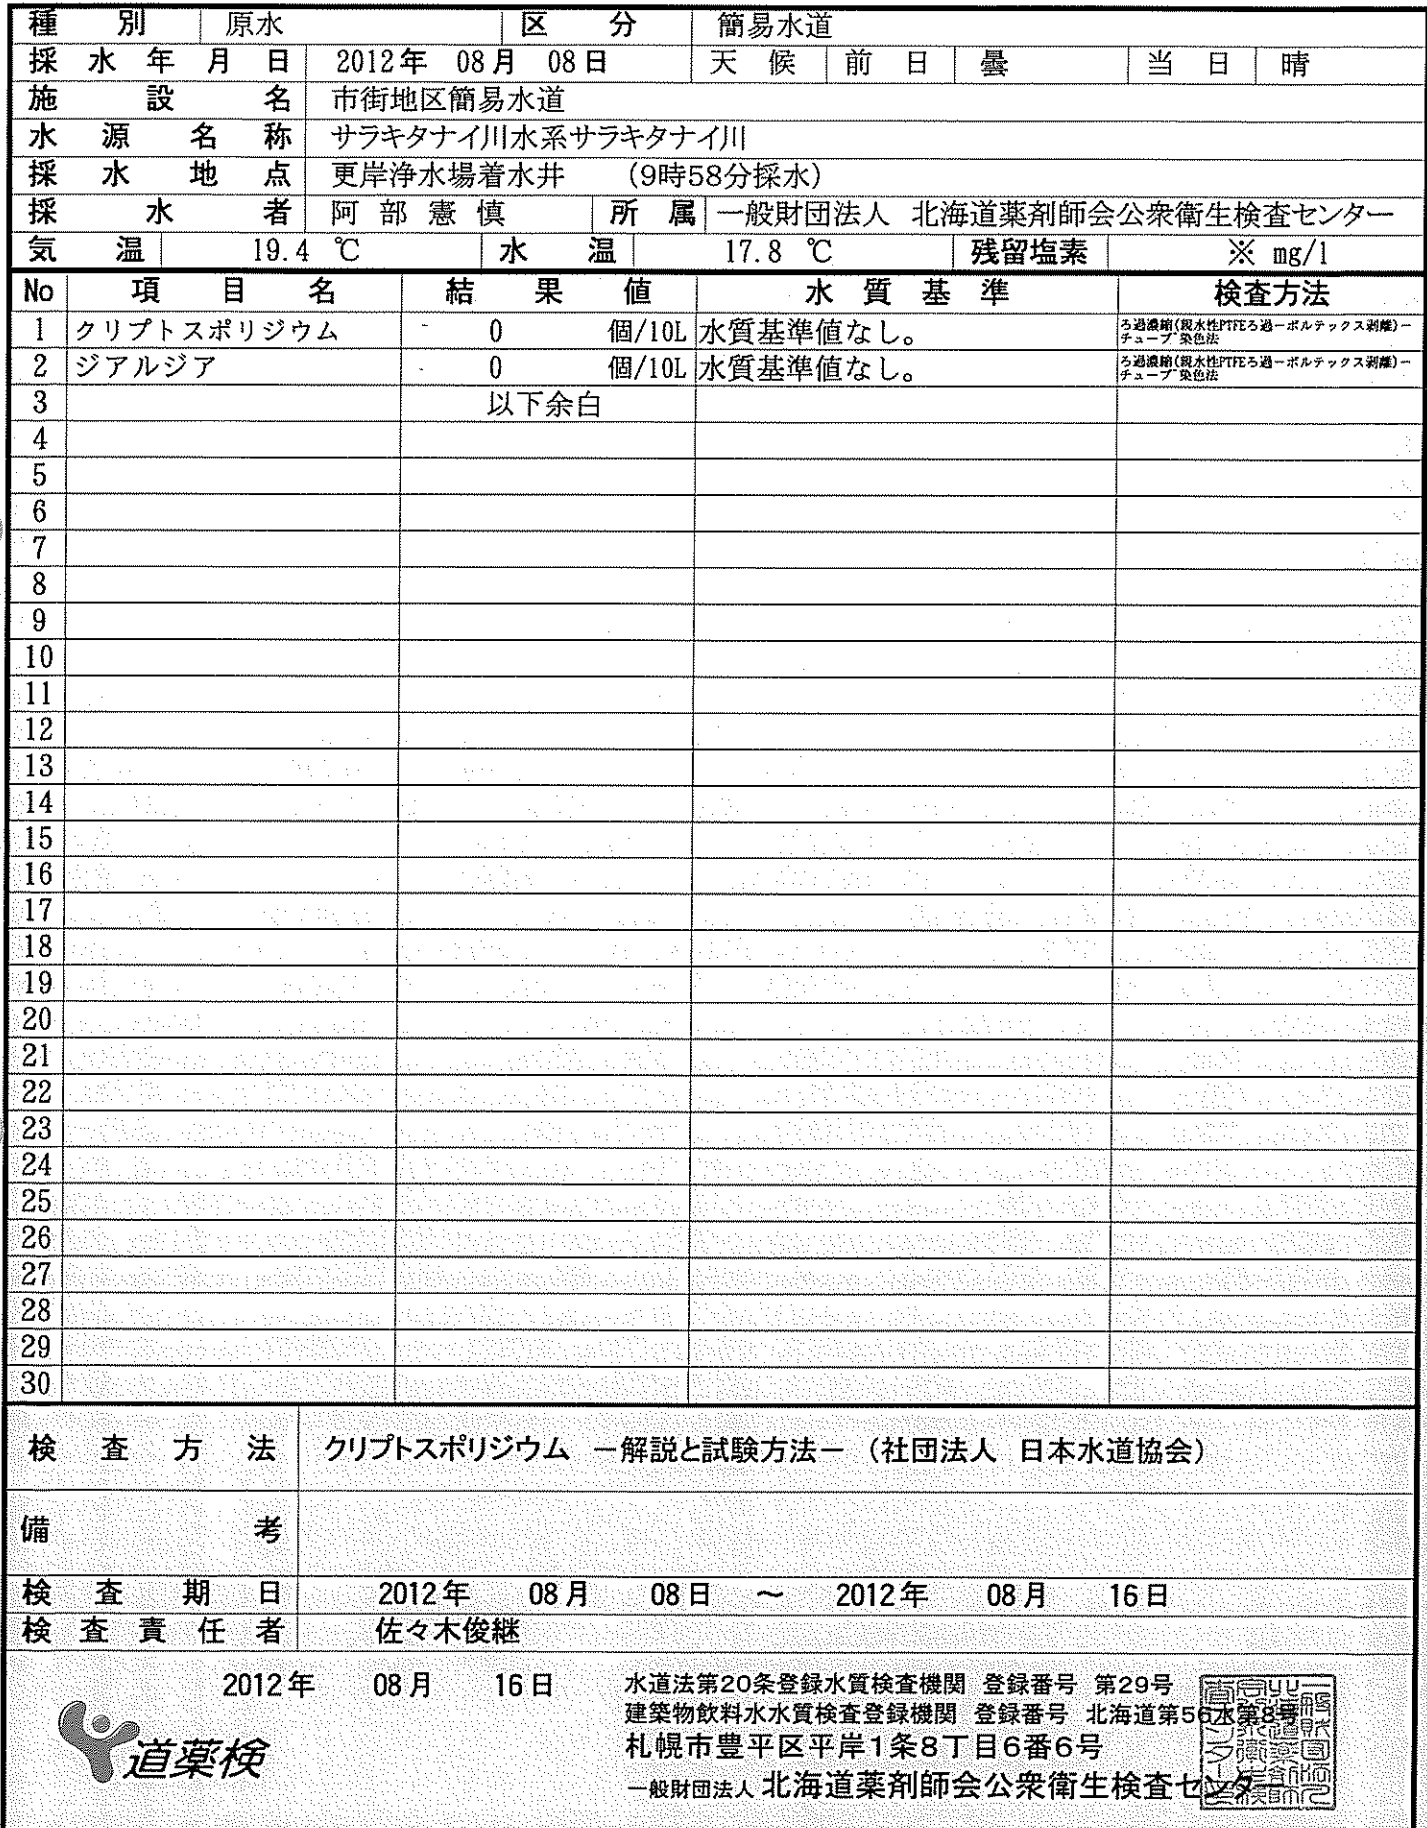 種別 原水 区分 簡易水道
採水年月日 2012年 08月 08日 天候 前日 曇 当日 晴
施設名 市街地区簡易水道
水源名称 サラキタナイ川水系サラキタナイ川
採水地点 更岸浄水場着水井 (9時58分採水)
採水者 阿部憲慎 所属 一般財団法人 北海道薬剤師会公衆衛生検査センター
気温 19.4 ℃ 水温 17.8 ℃ 残留塩素 ※ mg/l
No 項目名 結果値 水質基準 検査方法
1 クリプトスポリジウム 0 個/10L 水質基準値なし。 ろ過濃縮(親水性PTFEろ過ーボルテックス剥離)ーチューブ染色法
2 ジアルジア 0 個/10L 水質基準値なし。 ろ過濃縮(親水性PTFEろ過ーボルテックス剥離)ーチューブ染色法
3 以下余白
4
5
6
7
8
9
10
11
12
13
14
15
16
17
18
19
20
21
22
23
24
25
26
27
28
29
30
検査方法 クリプトスポリジウム ー解説と試験方法ー (社団法人 日本水道協会)
備考
検査期日 2012年 08月 08日 ～ 2012年 08月 16日
検査責任者 佐々木俊継
2012年 08月 16日
水道法第20条登録水質検査機関 登録番号 第29号
建築物飲料水水質検査登録機関 登録番号 北海道第56水第8号
札幌市豊平区平岸1条8丁目6番6号
一般財団法人 北海道薬剤師会公衆衛生検査センター
道薬検